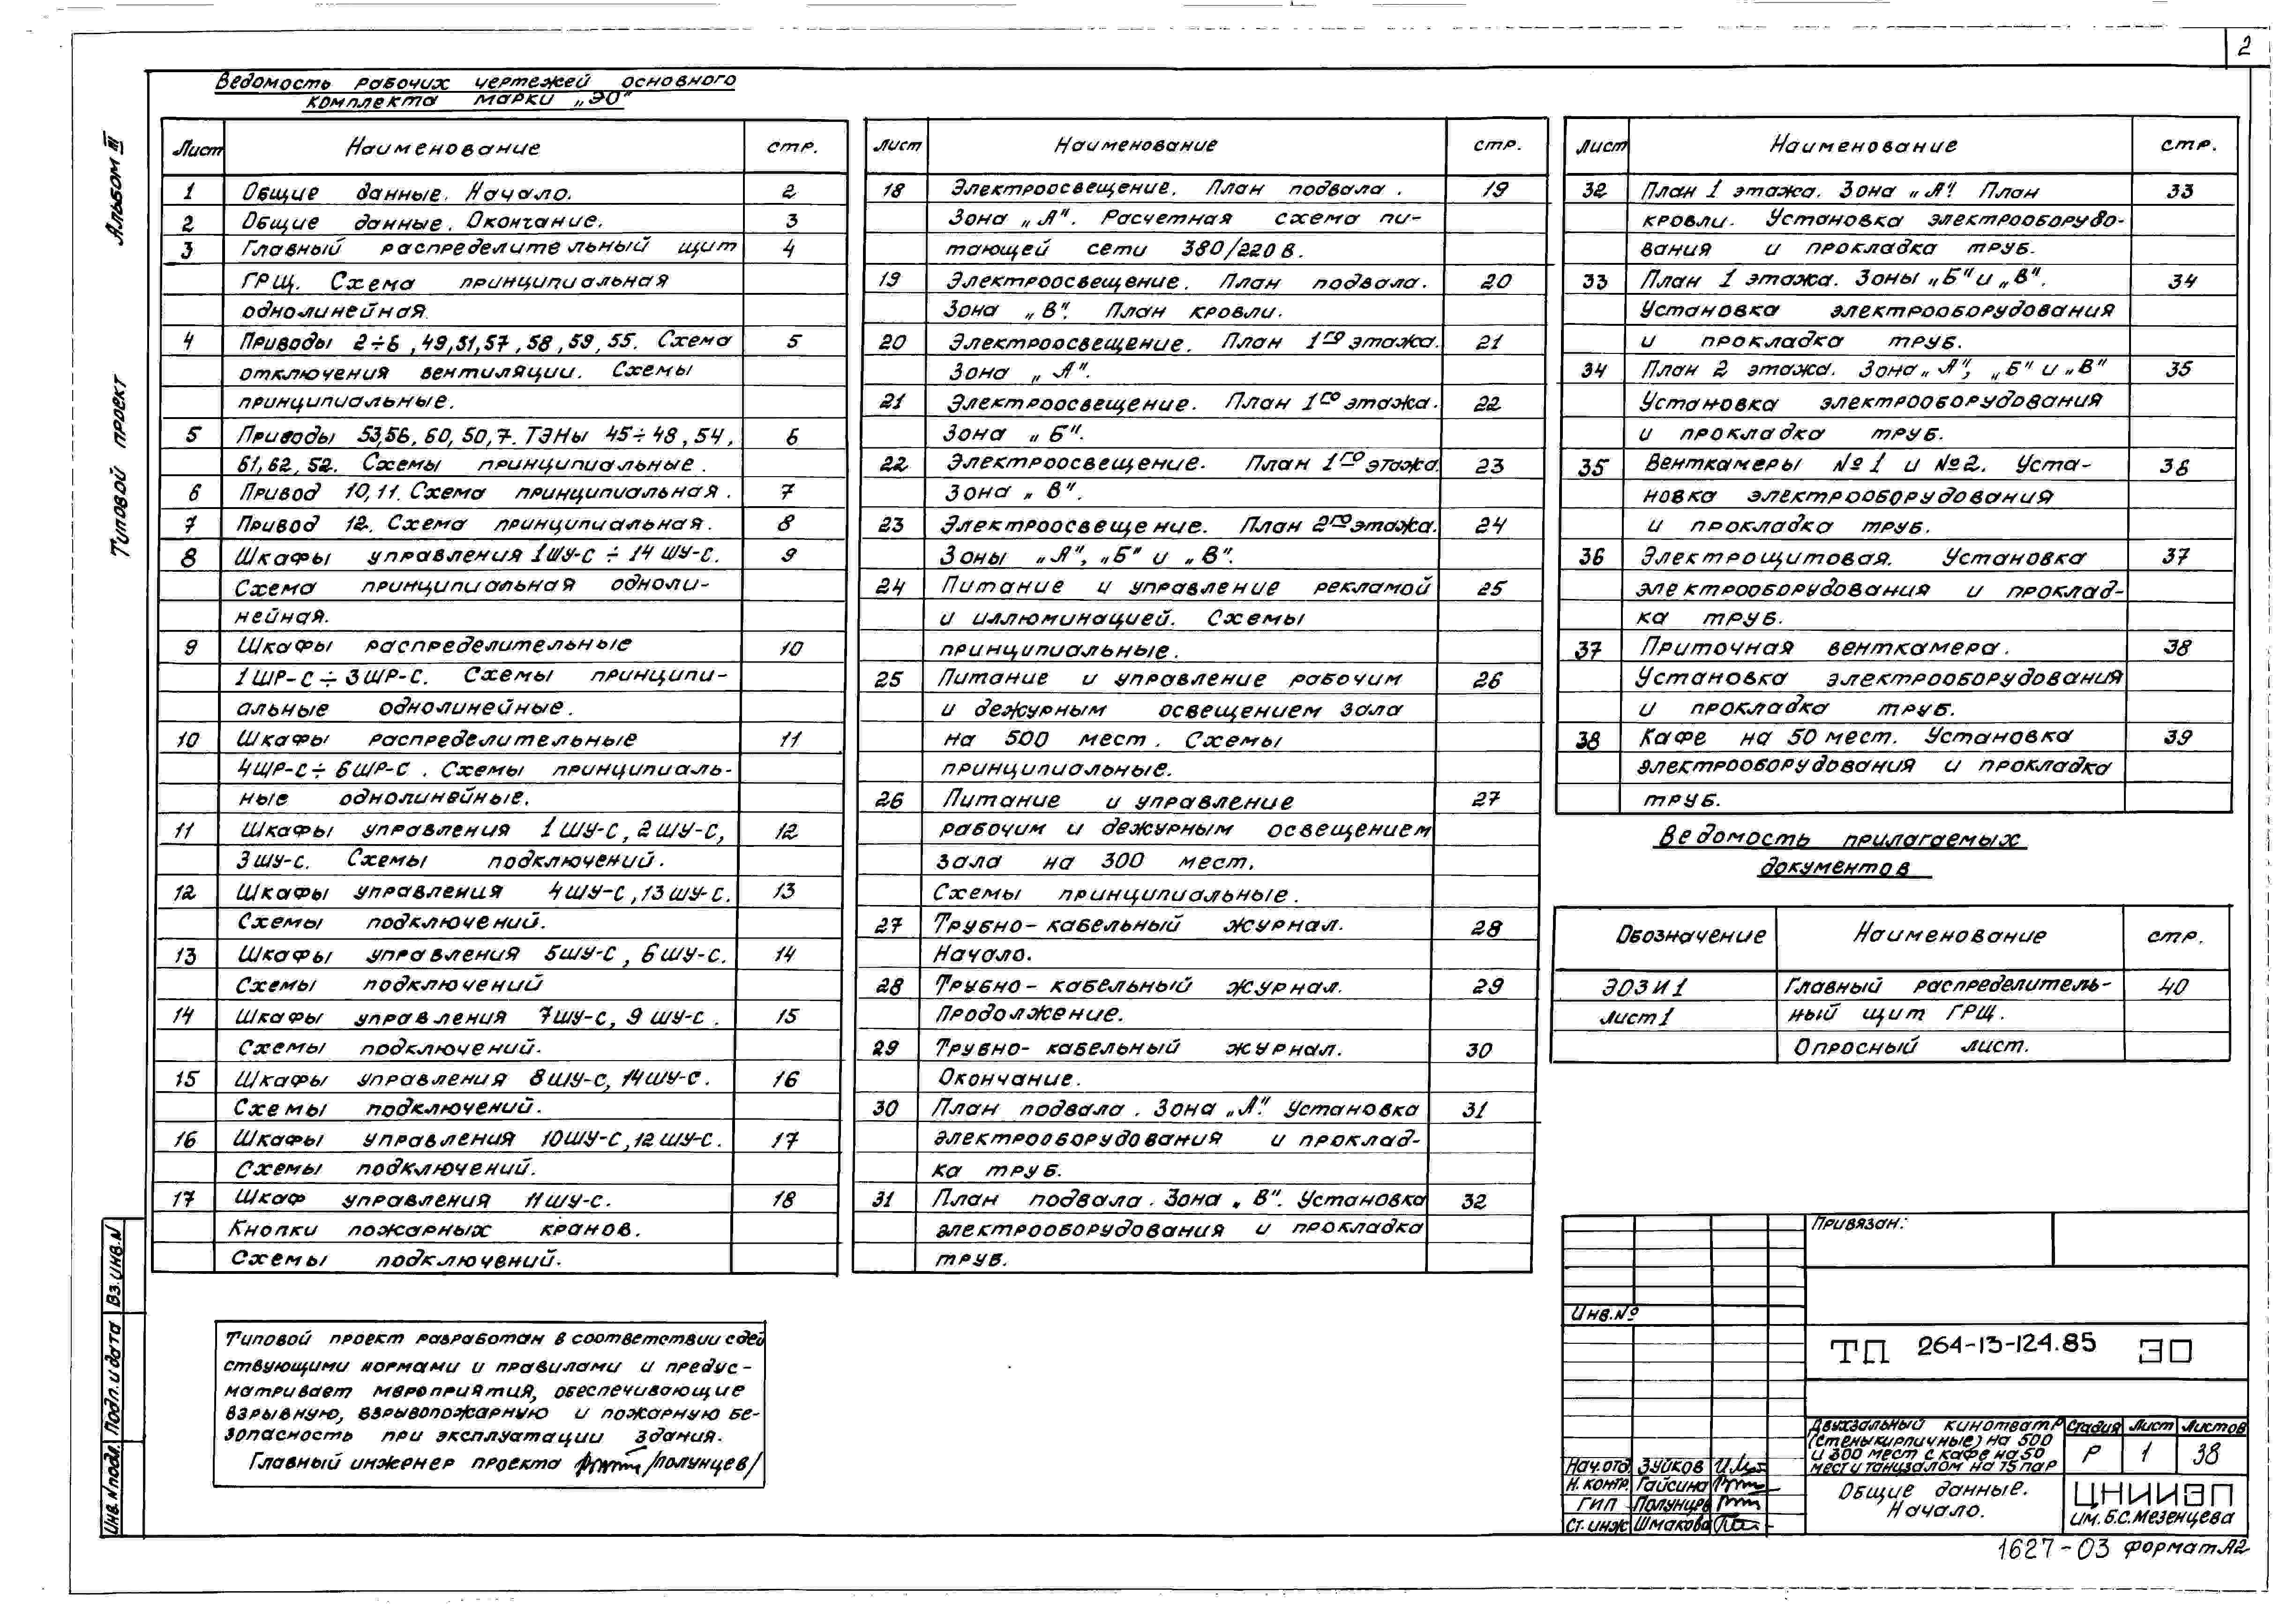 2
Альбом III
Типовой проект
Ведомость рабочих чертежей основного
комплекта марки „ЭО"
Лист Наименование стр.
1 Общие данные. Начало. 2
2 Общие данные. Окончание. 3
3 Главный распределительный щит 4
ГРЩ. Схема принципиальная
однолинейная.
4 Приводы 2÷6, 49, 51, 57, 58, 59, 55. Схема 5
отключения вентиляции. Схемы
принципиальные.
5 Приводы 53, 56, 60, 50, 7. ТЭНы 45÷48, 54, 6
61, 62, 52. Схемы принципиальные.
6 Привод 10, 11. Схема принципиальная. 7
7 Привод 12. Схема принципиальная. 8
8 Шкафы управления 1ШУ-С ÷ 14 ШУ-С. 9
Схема принципиальная одноли-
нейная.
9 Шкафы распределительные 10
1ШР-С÷3ШР-С. Схемы принципи-
альные однолинейные.
10 Шкафы распределительные 11
4ШР-С÷6ШР-С. Схемы принципиаль-
ные однолинейные.
11 Шкафы управления 1ШУ-С, 2ШУ-С, 12
3ШУ-С. Схемы подключений.
12 Шкафы управления 4ШУ-С, 13ШУ-С. 13
Схемы подключений.
13 Шкафы управления 5ШУ-С, 6ШУ-С. 14
Схемы подключений
14 Шкафы управления 7ШУ-С, 9 ШУ-С. 15
Схемы подключений.
15 Шкафы управления 8ШУ-С, 14ШУ-С. 16
Схемы подключений.
16 Шкафы управления 10ШУ-С, 12ШУ-С. 17
Схемы подключений.
17 Шкаф управления 11ШУ-С. 18
Кнопки пожарных кранов.
Схемы подключений.
Лист Наименование стр.
18 Электроосвещение. План подвала. 19
Зона „А". Расчетная схема пи-
тающей сети 380/220 В.
19 Электроосвещение. План подвала. 20
Зона „В". План кровли.
20 Электроосвещение. План 1го этажа. 21
Зона „А".
21 Электроосвещение. План 1го этажа. 22
Зона „Б".
22 Электроосвещение. План 1го этажа 23
Зона „В".
23 Электроосвещение. План 2го этажа. 24
Зоны „А", „Б" и „В".
24 Питание и управление рекламой 25
и иллюминацией. Схемы
принципиальные.
25 Питание и управление рабочим 26
и дежурным освещением зала
на 500 мест. Схемы
принципиальные.
26 Питание и управление 27
рабочим и дежурным освещением
зала на 300 мест.
Схемы принципиальные.
27 Трубно-кабельный журнал. 28
Начало.
28 Трубно-кабельный журнал. 29
Продолжение.
29 Трубно-кабельный журнал. 30
Окончание.
30 План подвала. Зона „А". Установка 31
электрооборудования и проклад-
ка труб.
31 План подвала. Зона „В". Установка 32
электрооборудования и прокладка
труб.
Лист Наименование стр.
32 План 1 этажа. Зона „А". План 33
кровли. Установка электрооборудо-
вания и прокладка труб.
33 План 1 этажа. Зоны „Б" и „В". 34
Установка электрооборудования
и прокладка труб.
34 План 2 этажа. Зона „А", „Б" и „В" 35
Установка электрооборудования
и прокладка труб.
35 Венткамеры №1 и №2. Уста- 36
новка электрооборудования
и прокладка труб.
36 Электрощитовая. Установка 37
электрооборудования и проклад-
ка труб.
37 Приточная венткамера. 38
Установка электрооборудования
и прокладка труб.
38 Кафе на 50 мест. Установка 39
электрооборудования и прокладка
труб.
Ведомость прилагаемых
документов
Обозначение Наименование стр.
ЭО3И1 Главный распределитель- 40
Лист 1 ный щит ГРЩ.
Опросный лист.
Типовой проект разработан в соответствии с дей
ствующими нормами и правилами и предус-
матривает мероприятия, обеспечивающие
взрывную, взрывопожарную и пожарную бе-
зопасность при эксплуатации здания.
Главный инженер проекта /Полунцев/
Инв.№подл. Подп. и дата Вз.инв.N
Привязан:
Инв.№
ТП 264-13-124.85 ЭО
Двухзальный кинотеатр
(стены кирпичные) на 500
и 300 мест с кафе на 50
мест и танцзалом на 75 пар
Стадия Лист Листов
Р 1 38
Нач.отд. Зуйков
Н.контр. Гайсина
ГИП Полунцев
Ст.инж Шмакова
Общие данные.
Начало.
ЦНИИЭП
им. Б.С. Мезенцева
1627-03 формат А2